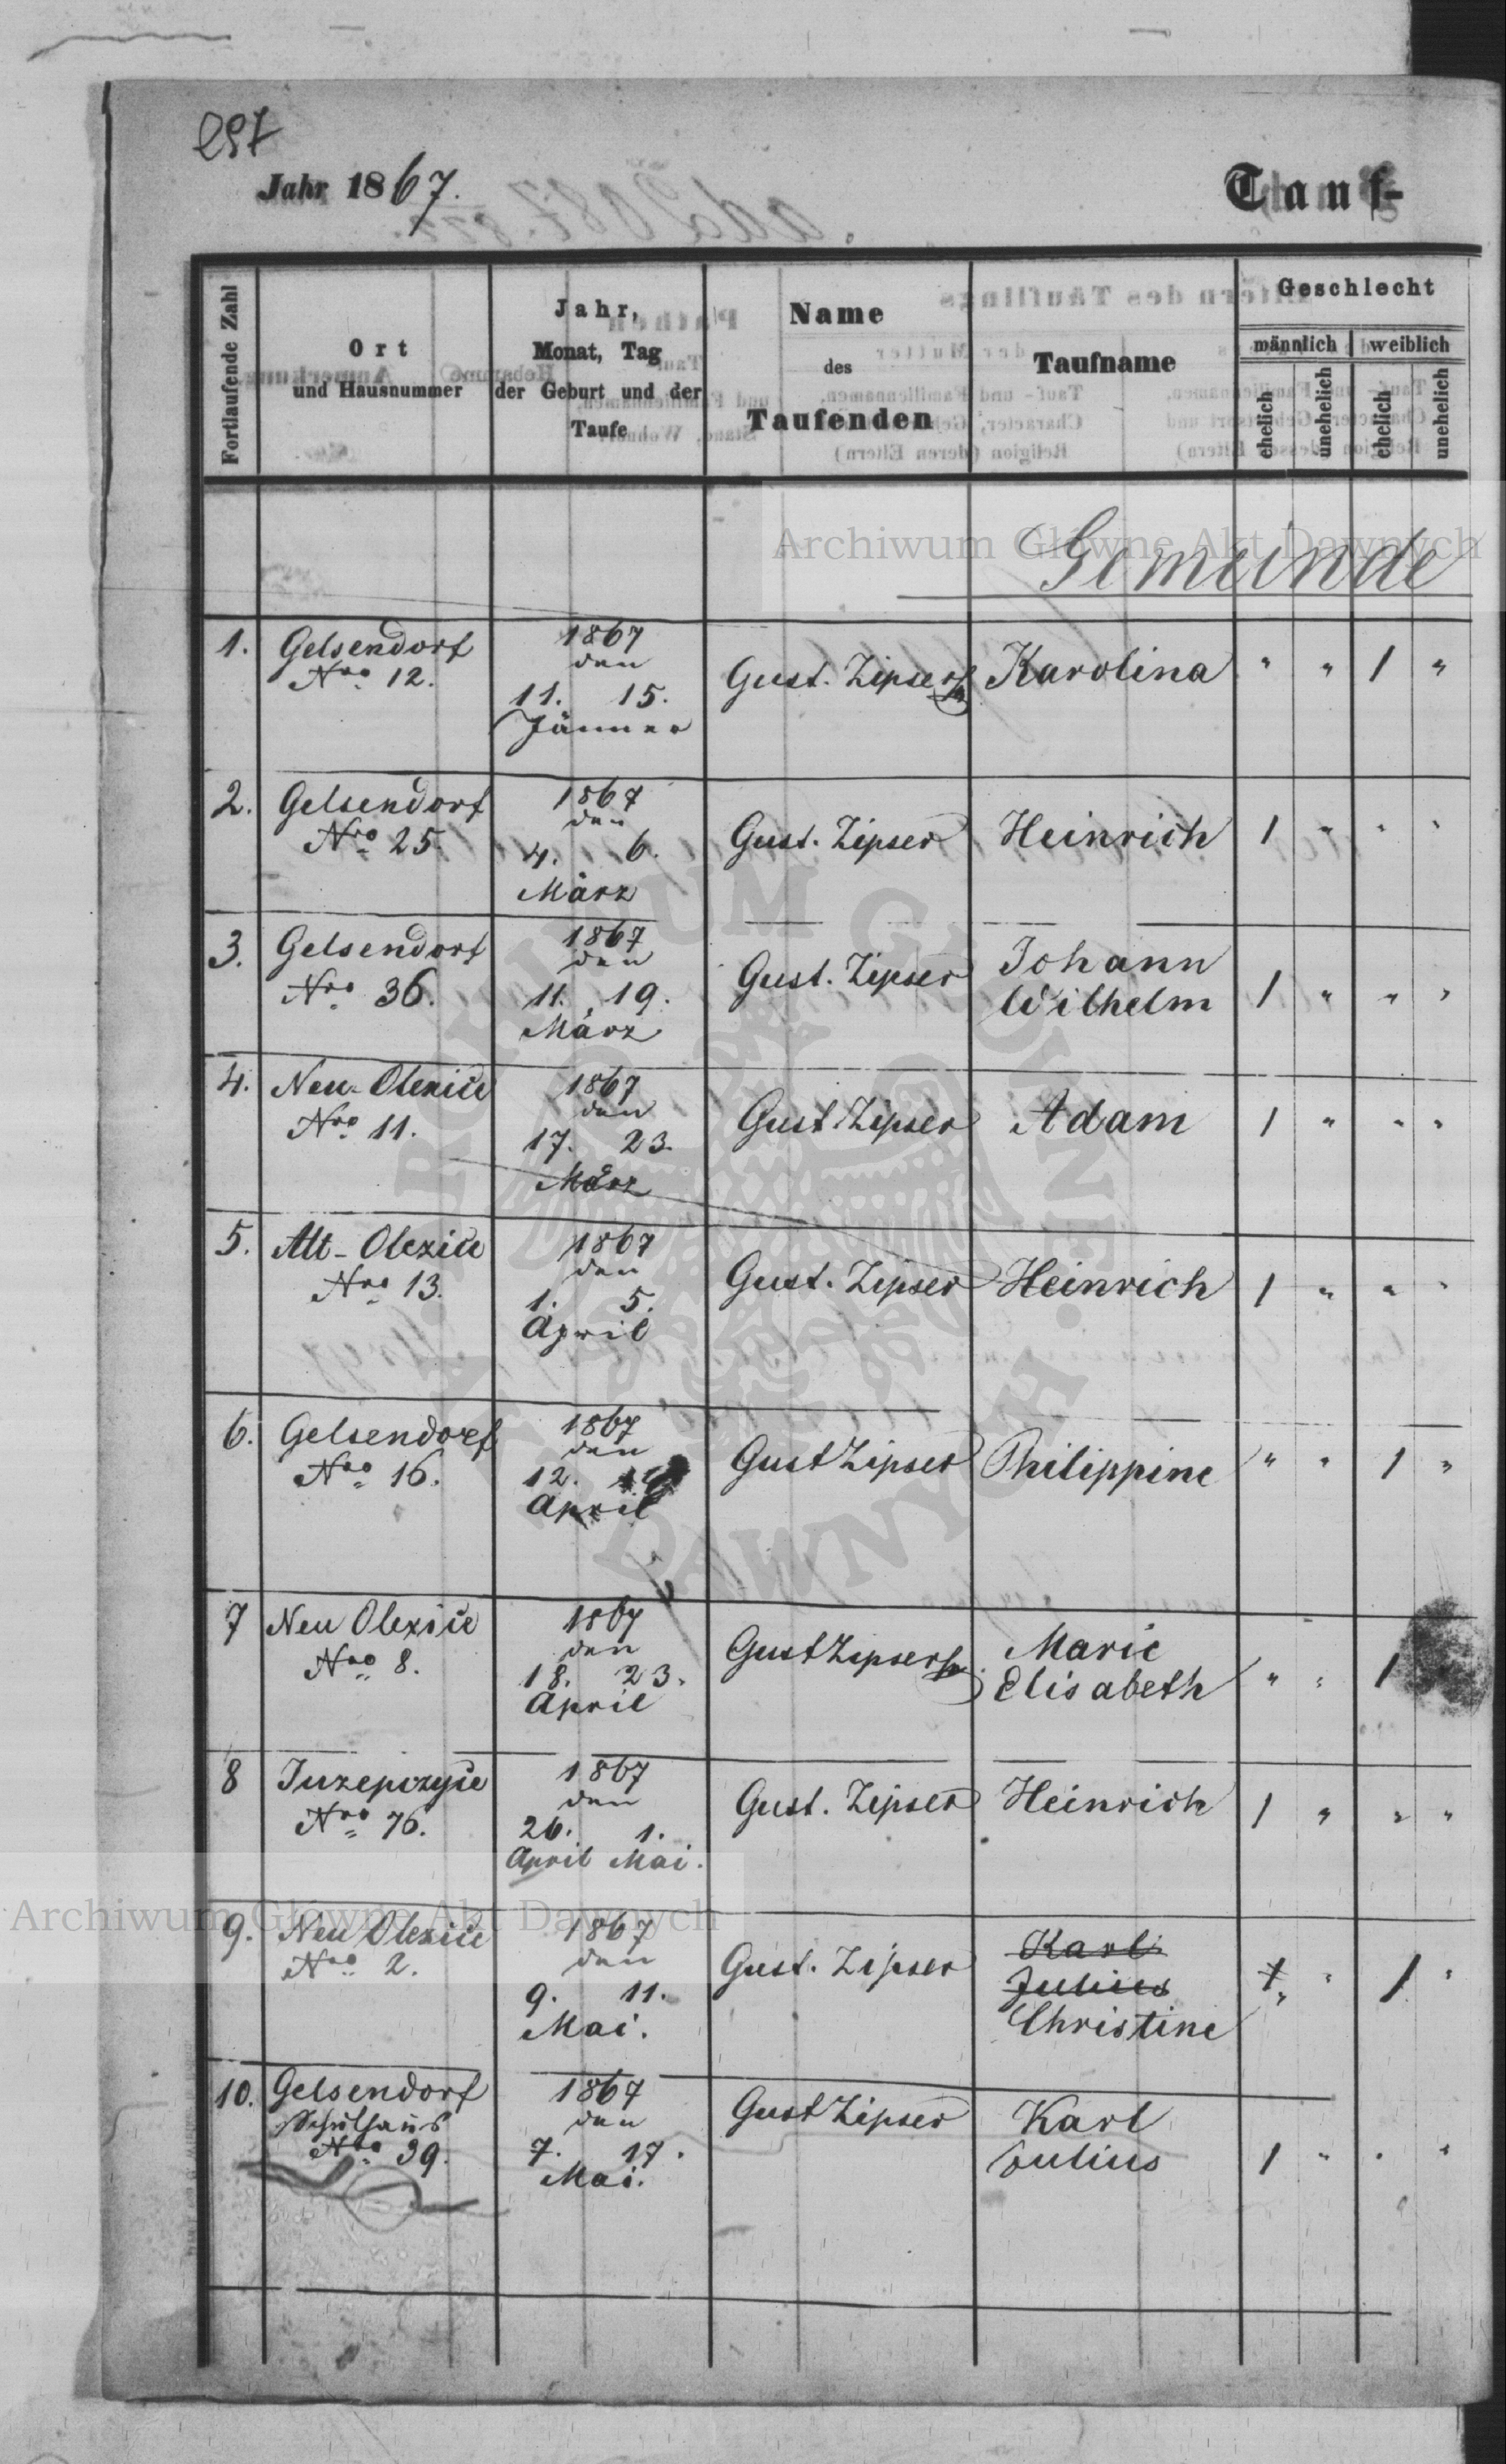 297
Jahr 1867.
Tauf-
Fortlaufende Zahl
Ort
und Hausnummer
Jahr,
Monat, Tag
der Geburt und der
Taufe
Name
des
Taufenden
Taufname
Geschlecht
männlich
weiblich
ehelich
unehelich
ehelich
unehelich
Archiwum Główne Akt Dawnych
Gemeinde
1. Gelsendorf 1867
Nro 12. den
11. 15. Gust. Zipser Karolina " " 1 "
Jänner
2. Gelsendorf 1867
Nro 25. den
4. 6. Gust. Zipser Heinrich 1 " " "
März
3. Gelsendorf 1867 Johann
Nro 36. den
11. 19. Gust. Zipser Wilhelm 1 " " "
März
4. Neu-Olexice 1867
Nro 11. den
17. 23. Gust Zipser Adam 1 " " "
März
5. Alt-Olexice 1867
Nro 13. den
1. 5. Gust. Zipser Heinrich 1 " " "
April
6. Gelsendorf 1867
Nro 16. den
12. Gust Zipser Philippine " " 1 "
April
7 Neu Olexice 1867 Marie
Nro 8. den
18. 23. Gust Zipser Elisabeth " " 1
April
8 Juzepczyce 1867
Nro 76. den
26. 1. Gust. Zipser Heinrich 1 " " "
April Mai.
Archiwum Główne Akt Dawnych
9. Neu Olexice 1867 Karl
Nro 2. den Julius
9. 11. Gust. Zipser Christine 1 " 1 "
Mai.
10. Gelsendorf 1867
Schulhaus den
Nro 39. 7. 17. Gust Zipser Karl
Mai. Julius 1 " " "
ARCHIWUM GŁÓWNE AKT DAWNYCH